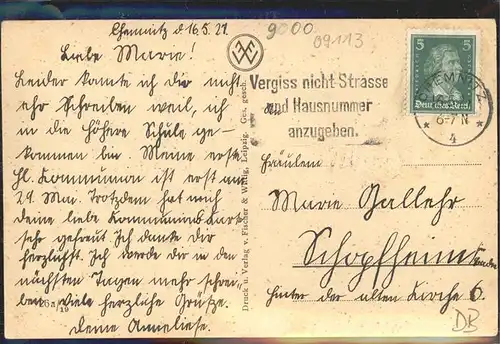 Chemnitz d 16.5.27.
9000
09113
Liebe Marie!
Leider konnte ich dir nicht
ehr Schreiben weil, ich
in die Höhere Schule ge-
kommen bin. Meine erste
hl. Kommunion ist erst am
29. Mai. Trotzdem hat mich
deine liebe Kommunionskart
sehr gefreut Ich danke dir
herzlichst. Ich werde dir in den
nächsten Tagen mehr schrei-
ben. Viele herzliche Grüße.
Deine Anneliese.
26a/19
Druck u. Verlag v. Fischer & Wittig, Leipzig. Ges. gesch.
Vergiss nicht Strasse
und Hausnummer
anzugeben.
5 5
Deutsches Reich
CHEMNITZ
6-7 N
* 4 *
Fräulein
Marie Gallehr
Schopfheim
Hinter der alten Kirche 6.
DB